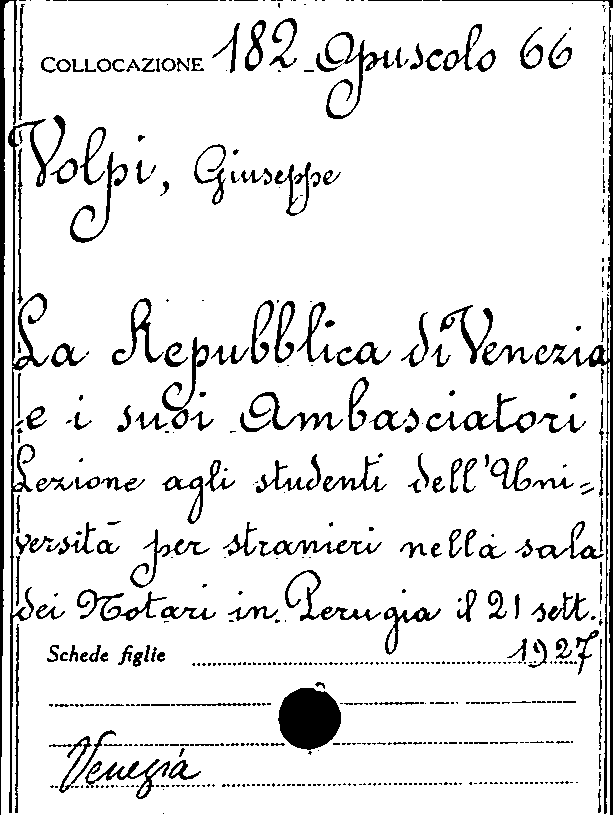 COLLOCAZIONE 182 Opuscolo 66
Volpi, Giuseppe
La Repubblica di Venezia
e i suoi Ambasciatori
Lezione agli studenti dell'Uni=
versità per stranieri nella sala
dei Notari in Perugia il 21 sett.
Schede figlie 1927
Venezia